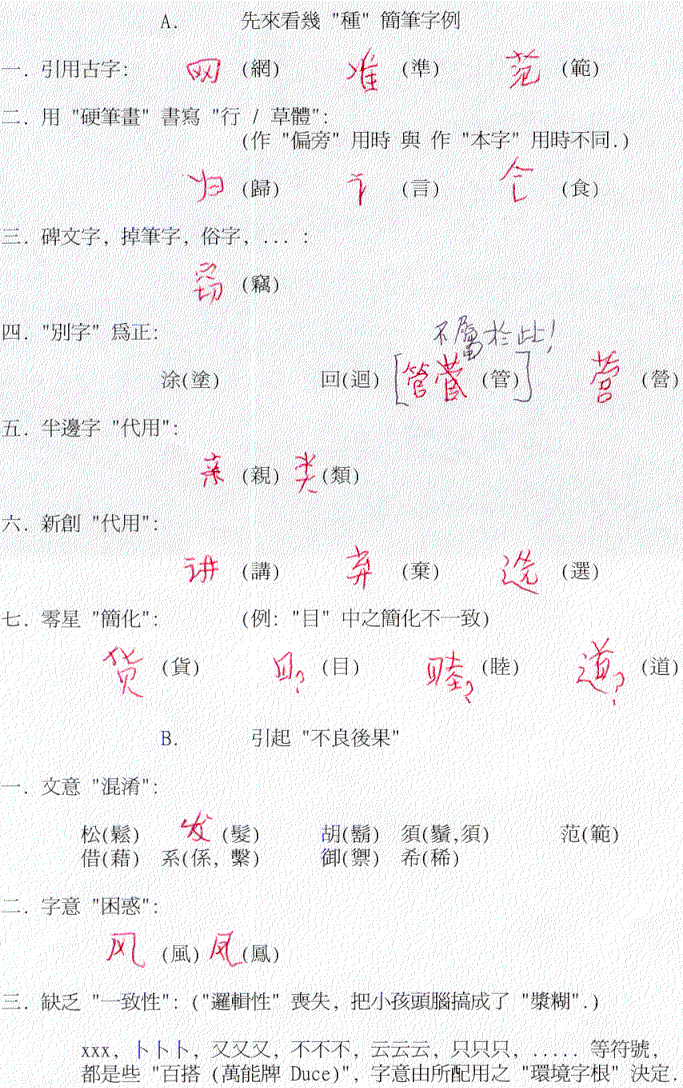 A. 先來看幾 "種" 簡筆字例
一. 引用古字: 网 (網) 准 (準) 范 (範)
二. 用 "硬筆畫" 書寫 "行 / 草體":
(作 "偏旁" 用時 與 作 "本字" 用時不同.)
归 (歸) 讠 (言) 饣 (食)
三. 碑文字, 掉筆字, 俗字, ... :
窃 (竊)
四. "別字" 爲正:
不屬於此!
涂(塗) 回(迴) [管菅 (管)] 营 (營)
五. 半邊字 "代用":
亲 (親) 类 (類)
六. 新創 "代用":
讲 (講) 弃 (棄) 选 (選)
七. 零星 "簡化": (例: "目" 中之簡化不一致)
货 (貨) 目? (目) 睦? (睦) 道? (道)
B. 引起 "不良後果"
一. 文意 "混淆":
松(鬆) 发 (髮) 胡(鬍) 須(鬚,須) 范(範)
借(藉) 系(係, 繫) 御(禦) 希(稀)
二. 字意 "困惑":
风 (風) 凤 (鳳)
三. 缺乏 "一致性": ("邏輯性" 喪失, 把小孩頭腦搞成了 "漿糊".)
xxx, 卜卜卜, 又又又, 不不不, 云云云, 只只只, ..... 等符號,
都是些 "百搭 (萬能牌 Duce)", 字意由所配用之 "環境字根" 決定.